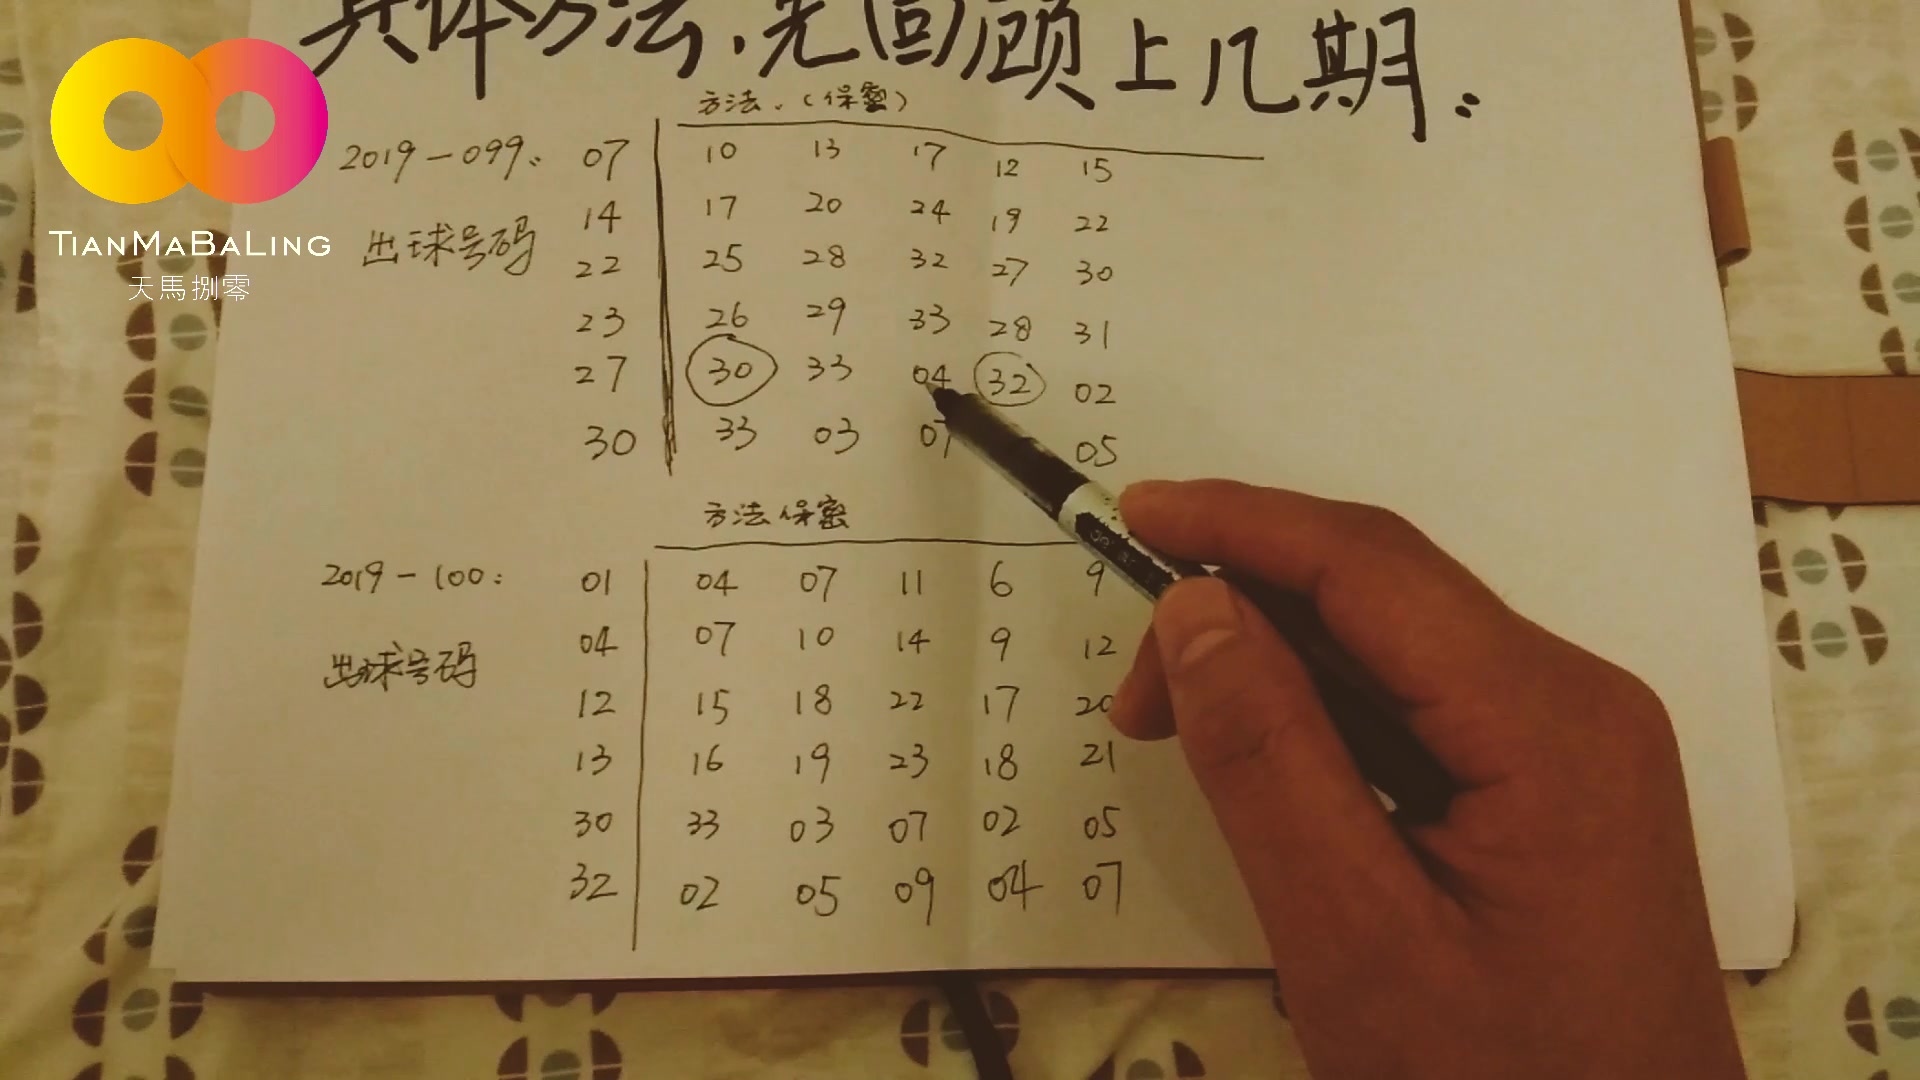 具体方法,先回顾上几期:
TIANMABALING
天馬捌零
方法.(保密)
2019-099: 07 10 13 17 12 15
出球号码 14 17 20 24 19 22
22 25 28 32 27 30
23 26 29 33 28 31
27 30 33 04 32 02
30 33 03 07 05
方法保密
2019-100: 01 04 07 11 6 9
04 07 10 14 9 12
出球号码
12 15 18 22 17 20
13 16 19 23 18 21
30 33 03 07 02 05
32 02 05 09 04 07